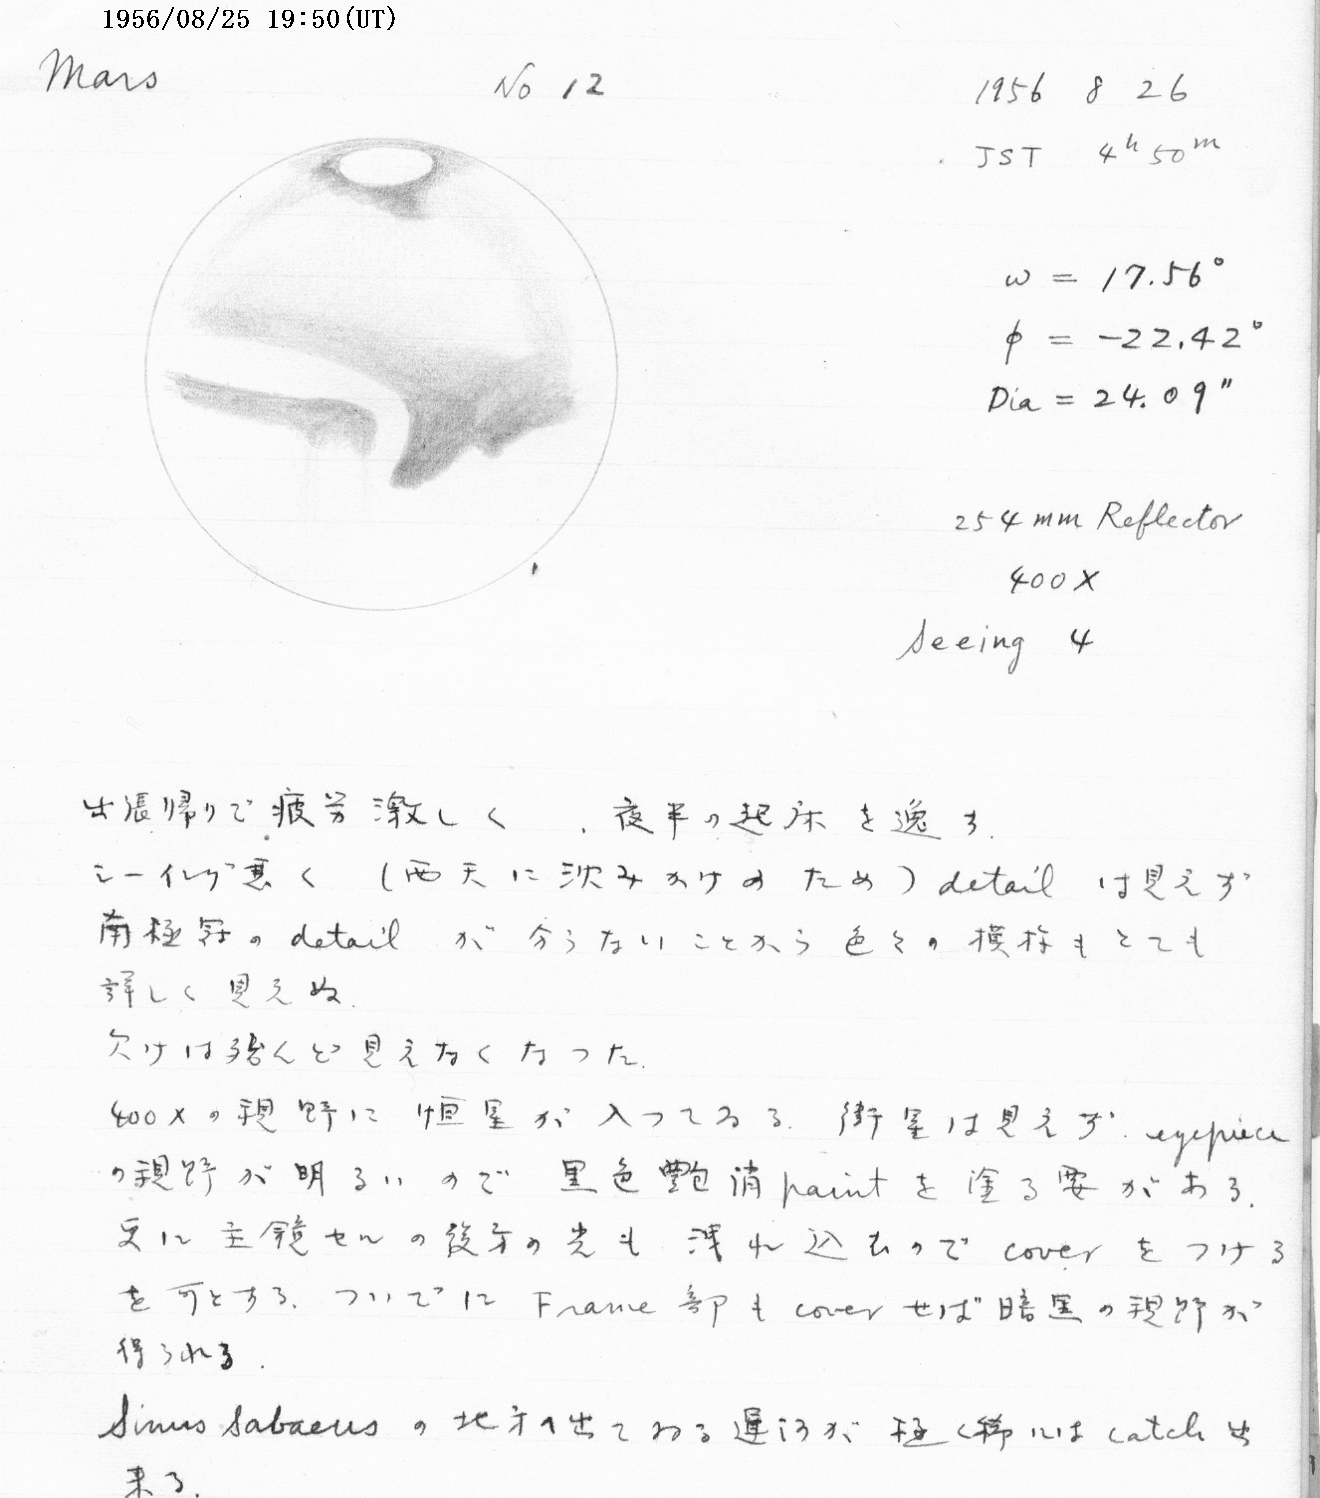 1956/08/25 19:50(UT)
Mars
No 12
1956 8 26
JST 4h 50m
ω = 17.56°
φ = -22.42°
Dia = 24.09"
254 mm Reflector
400X
Seeing 4
出張帰りで疲労激しく、夜半の起床を逸す.
シーイング悪く (西天に沈みかけのため) detail は見えず
南極冠の detail が 分らないことから 色々の 模様もとても
詳しく見えぬ.
欠けは殆んど見えなくなった.
400Xの視野に 恒星が 入つてゐる. 衛星は見えず. eyepiece
の視野が明るいので 黒色艶消paintを塗る要がある.
更に主鏡セルの後方の光も 洩れ込むので cover をつける
を可とする. ついでに Frame 部も cover せば暗黒の視野が
得られる.
Sinus Sabaeus の北方へ出てゐる運河が 極く稀には catch 出
来る.